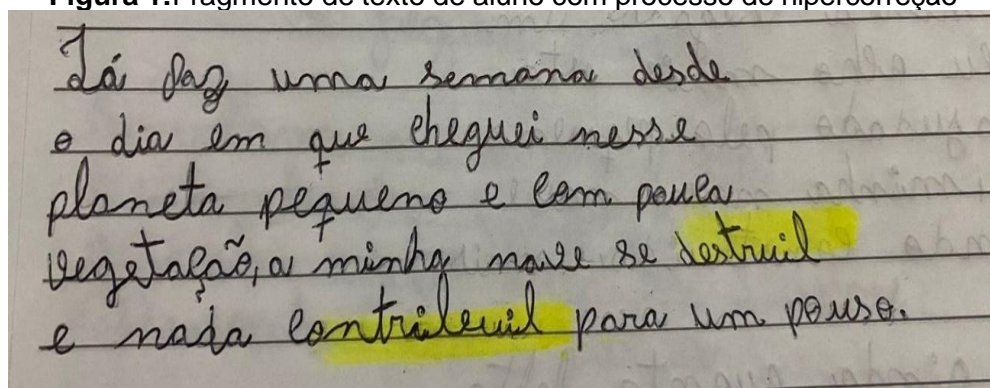 Figura 1: Fragmento de texto de aluno com processo de hipercorreção
Já faz uma semana desde
o dia em que cheguei nesse
planeta pequeno e com pouca
vegetação, a minha nave se destruil
e nada contribuil para um pouso.